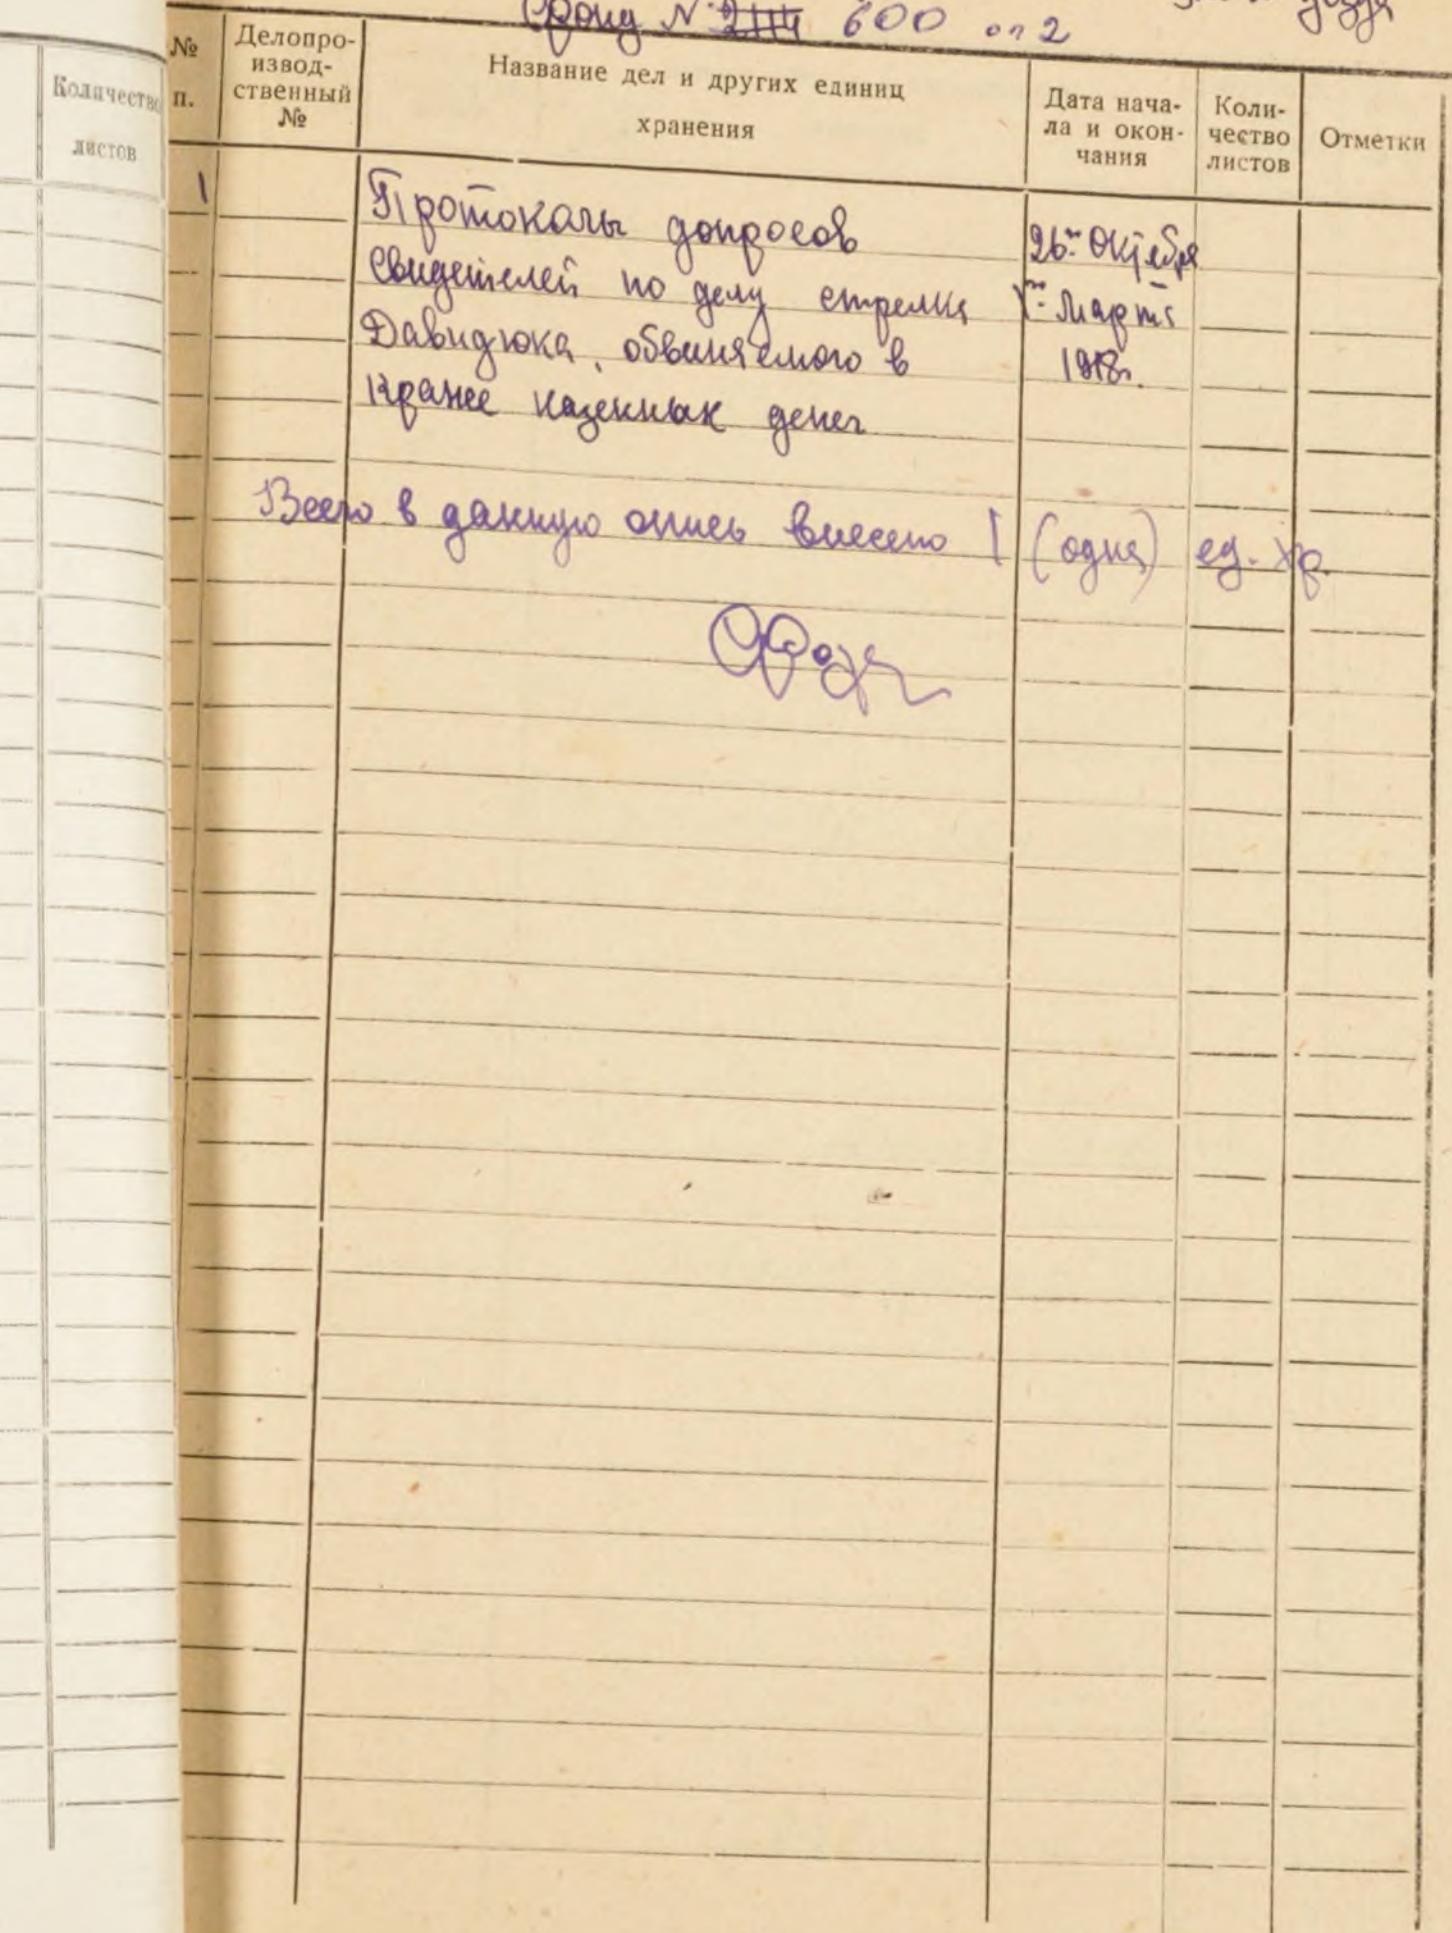 Фонд № 600 оп 2
Количество
листов
№
п.
Делопро-
извод-
ственный
№
Название дел и других единиц
хранения
Дата нача-
ла и окон-
чания
Коли-
чество
листов
Отметки
1
Протоколы допросов
свидетелей по делу стрелка
Давидюка, обвиняемого в
краже казенных денег
26 октября
Марта
1918г.
Всего в данную опись внесено 1 (одна) ед. хр.